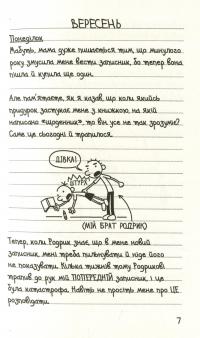 ВЕРЕСЕНЬ
Понеділок
Мабуть, мама дуже пишається тим, що минулого
року змусила мене вести записник, бо тепер вона
пішла й купила ще один.
Але пам'ятаєте, як я казав, що коли якийсь
придурок застукає мене з книжкою, на якій
написано «щоденник», то він усе не так зрозуміє?
Саме це сьогодні й трапилося.
ДІВКА!
ШТУРХ
(МІЙ БРАТ РОДРІК)
Тепер, коли Родрік знає, що в мене новий
записник, мені треба пильнувати й ніде його
не показувати. Кілька тижнів тому Родрікові
трапив до рук мій ПОПЕРЕДНІЙ записник, і це
була катастрофа. Навіть не просіть мене про ЦЕ
розповідати.
7